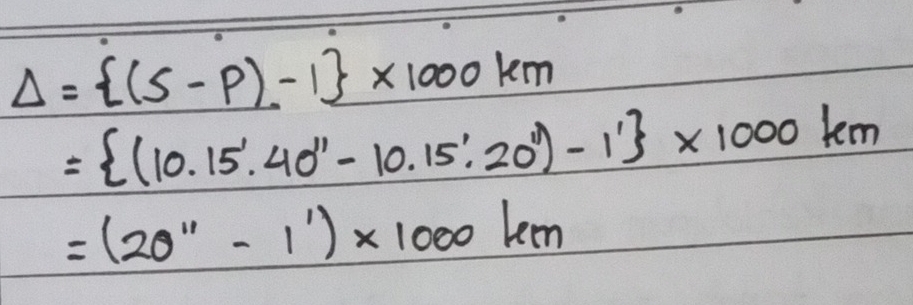 Δ = {(S - P) - 1} × 1000 km
= {(10.15'.40" - 10.15'.20") - 1'} × 1000 km
= (20" - 1') × 1000 km